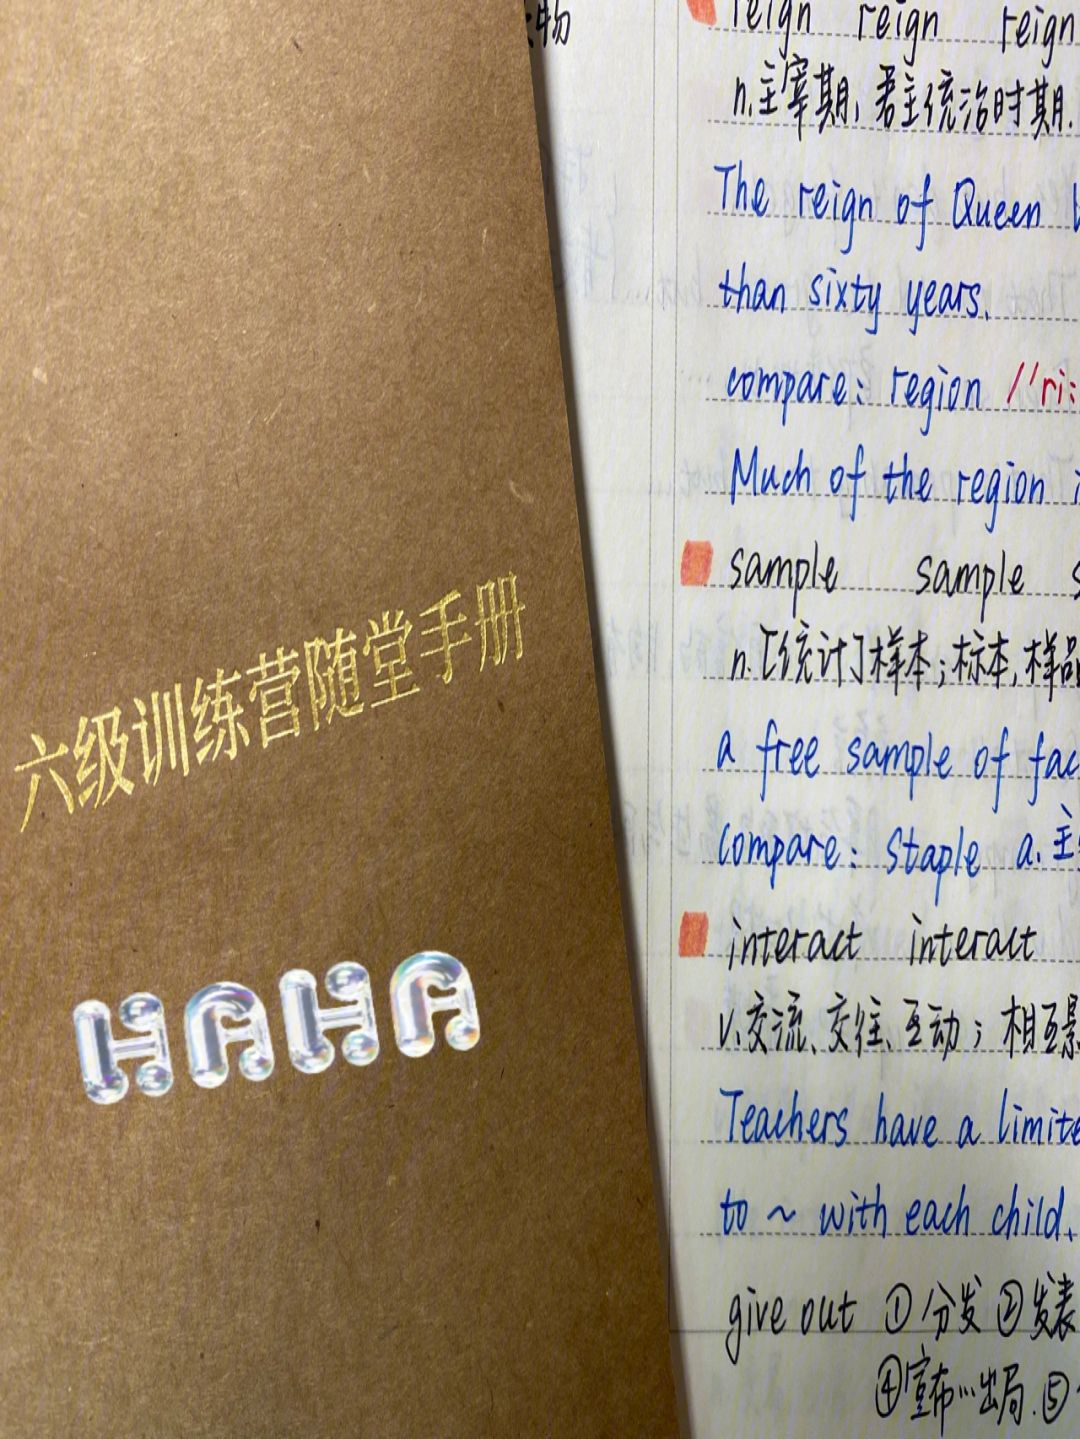 六级训练营随堂手册
HAHA
物
reign reign reign
n.主宰期,君主统治时期.
The reign of Queen
than sixty years.
compare: region //ri:
Much of the region
sample sample s
n.[统计]样本;标本,样品
a free sample of fac
compare: staple a.主
interact interact
v.交流、交往、互动;相互影
Teachers have a limite
to ~ with each child.
give out ①分发 ②发表
④宣布…出局.⑤